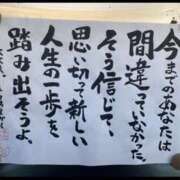 今までのあなたは
間違っていなかった。
そう信じて、
思い切って新しい
人生の一歩を
踏み出そうよ。